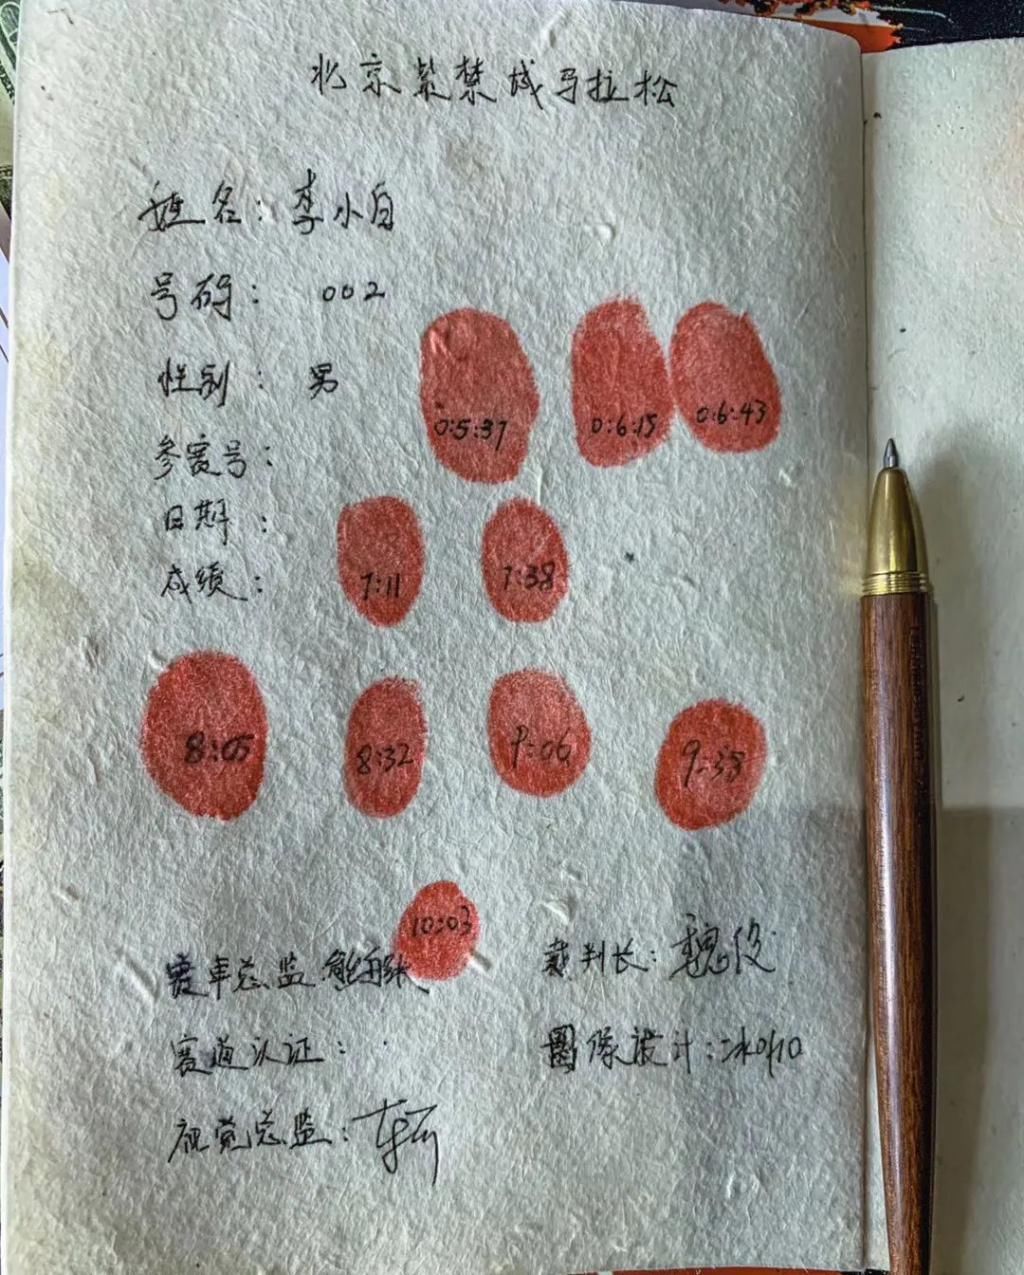 北京紫禁城马拉松
姓名：李小白
号码： 002
性别：男
参赛号：
日期：
成绩：
0:5:37 0:6:15 0:6:43
7:11 7:38
8:05 8:32 9:06 9:38
10:03
赛事总监
裁判长：魏
赛道认证：
图像设计：
视觉总监：